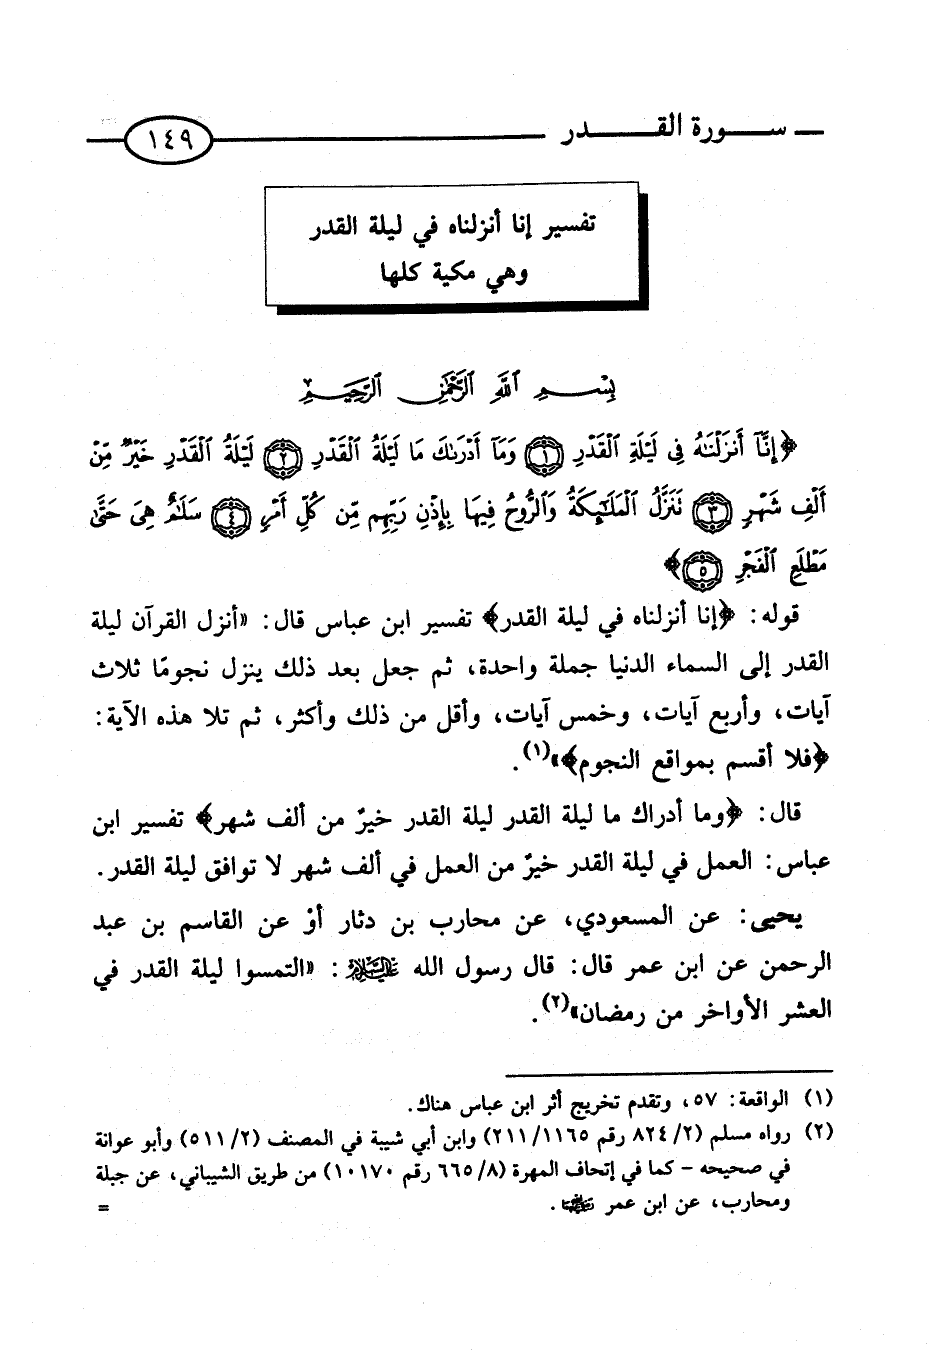 سورة القدر ١٤٩
تفسير إنا أنزلناه في ليلة القدر
وهي مكية كلها
بِسْمِ اللَّهِ الرَّحْمَٰنِ الرَّحِيمِ
﴿إِنَّآ أَنزَلْنَٰهُ فِى لَيْلَةِ ٱلْقَدْرِ ١ وَمَآ أَدْرَىٰكَ مَا لَيْلَةُ ٱلْقَدْرِ ٢ لَيْلَةُ ٱلْقَدْرِ خَيْرٌ مِّنْ
أَلْفِ شَهْرٍ ٣ تَنَزَّلُ ٱلْمَلَٰٓئِكَةُ وَٱلرُّوحُ فِيهَا بِإِذْنِ رَبِّهِم مِّن كُلِّ أَمْرٍ ٤ سَلَٰمٌ هِىَ حَتَّىٰ
مَطْلَعِ ٱلْفَجْرِ ٥﴾
قوله: ﴿إنا أنزلناه في ليلة القدر﴾ تفسير ابن عباس قال: «أنزل القرآن ليلة
القدر إلى السماء الدنيا جملة واحدة، ثم جعل بعد ذلك ينزل نجومًا ثلاث
آيات، وأربع آيات، وخمس آيات، وأقل من ذلك وأكثر، ثم تلا هذه الآية:
﴿فلا أقسم بمواقع النجوم﴾»(١).
قال: ﴿وما أدراك ما ليلة القدر ليلة القدر خيرٌ من ألف شهر﴾ تفسير ابن
عباس: العمل في ليلة القدر خيرٌ من العمل في ألف شهر لا توافق ليلة القدر.
يحيى: عن المسعودي، عن محارب بن دثار أوْ عن القاسم بن عبد
الرحمن عن ابن عمر قال: قال رسول الله عليه السلام: «التمسوا ليلة القدر في
العشر الأواخر من رمضان»(٢).
(١) الواقعة: ٥٧، وتقدم تخريج أثر ابن عباس هناك.
(٢) رواه مسلم (٢/ ٨٢٤ رقم ١١٦٥/ ٢١١) وابن أبي شيبة في المصنف (٢/ ٥١١) وأبو عوانة
في صحيحه - كما في إتحاف المهرة (٨/ ٦٦٥ رقم ١٠١٧٠) من طريق الشيباني، عن جبلة
ومحارب، عن ابن عمر رضي الله عنهما. =